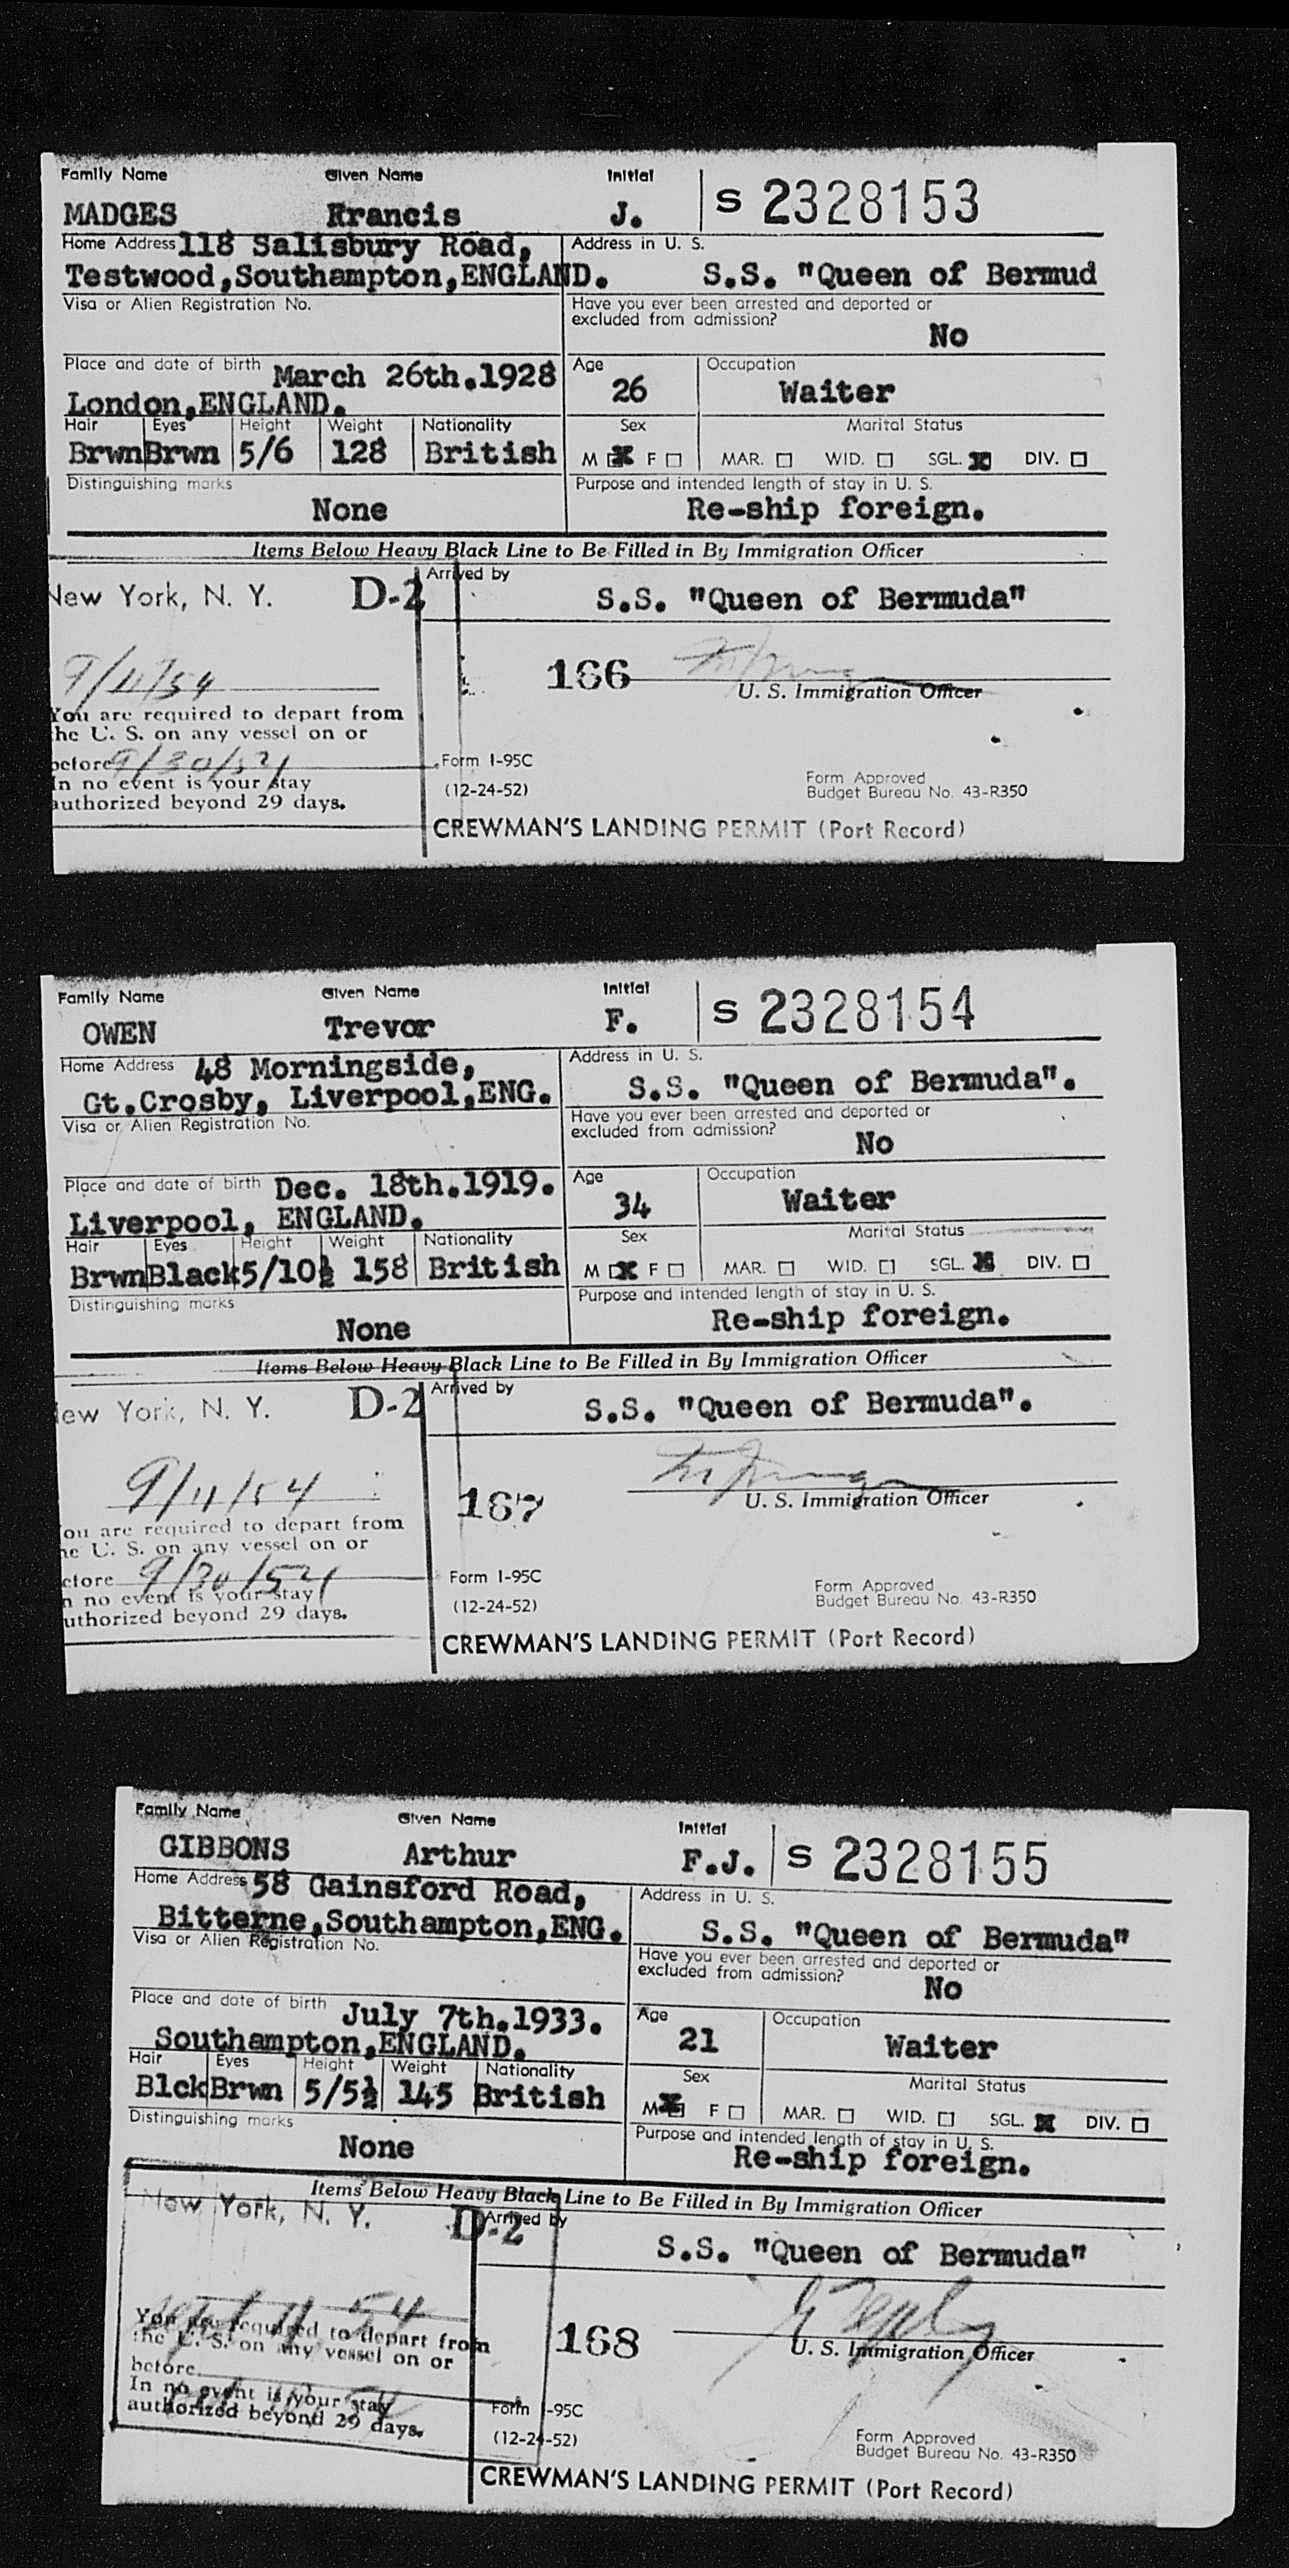 Family Name Given Name Initial
MADGES Francis J. S 2328153
Home Address 118 Salisbury Road, Address in U. S.
Testwood,Southampton,ENGLAND. S.S. "Queen of Bermud
Visa or Alien Registration No. Have you ever been arrested and deported or
excluded from admission?
No
Place and date of birth March 26th.1928 Age Occupation
London,ENGLAND. 26 Waiter
Hair Eyes Height Weight Nationality Sex Marital Status
Brwn Brwn 5/6 128 British M F MAR. WID. SGL. DIV.
Distinguishing marks Purpose and intended length of stay in U. S.
None Re-ship foreign.
Items Below Heavy Black Line to Be Filled in By Immigration Officer
New York, N. Y. D-2 Arrived by S.S. "Queen of Bermuda"
9/11/54 166
U. S. Immigration Officer
You are required to depart from
the U. S. on any vessel on or
before 9/30/54 Form I-95C
In no event is your stay (12-24-52) Form Approved
authorized beyond 29 days. Budget Bureau No. 43-R350
CREWMAN'S LANDING PERMIT (Port Record)
Family Name Given Name Initial
OWEN Trevor F. S 2328154
Home Address 48 Morningside, Address in U. S.
Gt.Crosby, Liverpool,ENG. S.S. "Queen of Bermuda".
Visa or Alien Registration No. Have you ever been arrested and deported or
excluded from admission?
No
Place and date of birth Dec. 18th.1919. Age Occupation
Liverpool, ENGLAND. 34 Waiter
Hair Eyes Height Weight Nationality Sex Marital Status
Brwn Black 5/10½ 158 British M F MAR. WID. SGL. DIV.
Distinguishing marks Purpose and intended length of stay in U. S.
None Re-ship foreign.
Items Below Heavy Black Line to Be Filled in By Immigration Officer
ew York, N. Y. D-2 Arrived by S.S. "Queen of Bermuda".
9/11/54 167
U. S. Immigration Officer
ou are required to depart from
he U. S. on any vessel on or
efore 9/30/54 Form I-95C
n no event is your stay (12-24-52) Form Approved
uthorized beyond 29 days. Budget Bureau No. 43-R350
CREWMAN'S LANDING PERMIT (Port Record)
Family Name Given Name Initial
GIBBONS Arthur F.J. S 2328155
Home Address 58 Gainsford Road, Address in U. S.
Bitterne,Southampton,ENG. S.S. "Queen of Bermuda"
Visa or Alien Registration No. Have you ever been arrested and deported or
excluded from admission?
No
Place and date of birth July 7th.1933. Age Occupation
Southampton,ENGLAND. 21 Waiter
Hair Eyes Height Weight Nationality Sex Marital Status
Blck Brwn 5/5½ 145 British M F MAR. WID. SGL. DIV.
Distinguishing marks Purpose and intended length of stay in U. S.
None Re-ship foreign.
Items Below Heavy Black Line to Be Filled in By Immigration Officer
New York, N. Y. D-2 Arrived by
S.S. "Queen of Bermuda"
54
You are required to depart from 168 U. S. Immigration Officer
the U. S. on any vessel on or
before
In no event is your stay Form I-95C
authorized beyond 29 days. (12-24-52) Form Approved
Budget Bureau No. 43-R350
CREWMAN'S LANDING PERMIT (Port Record)